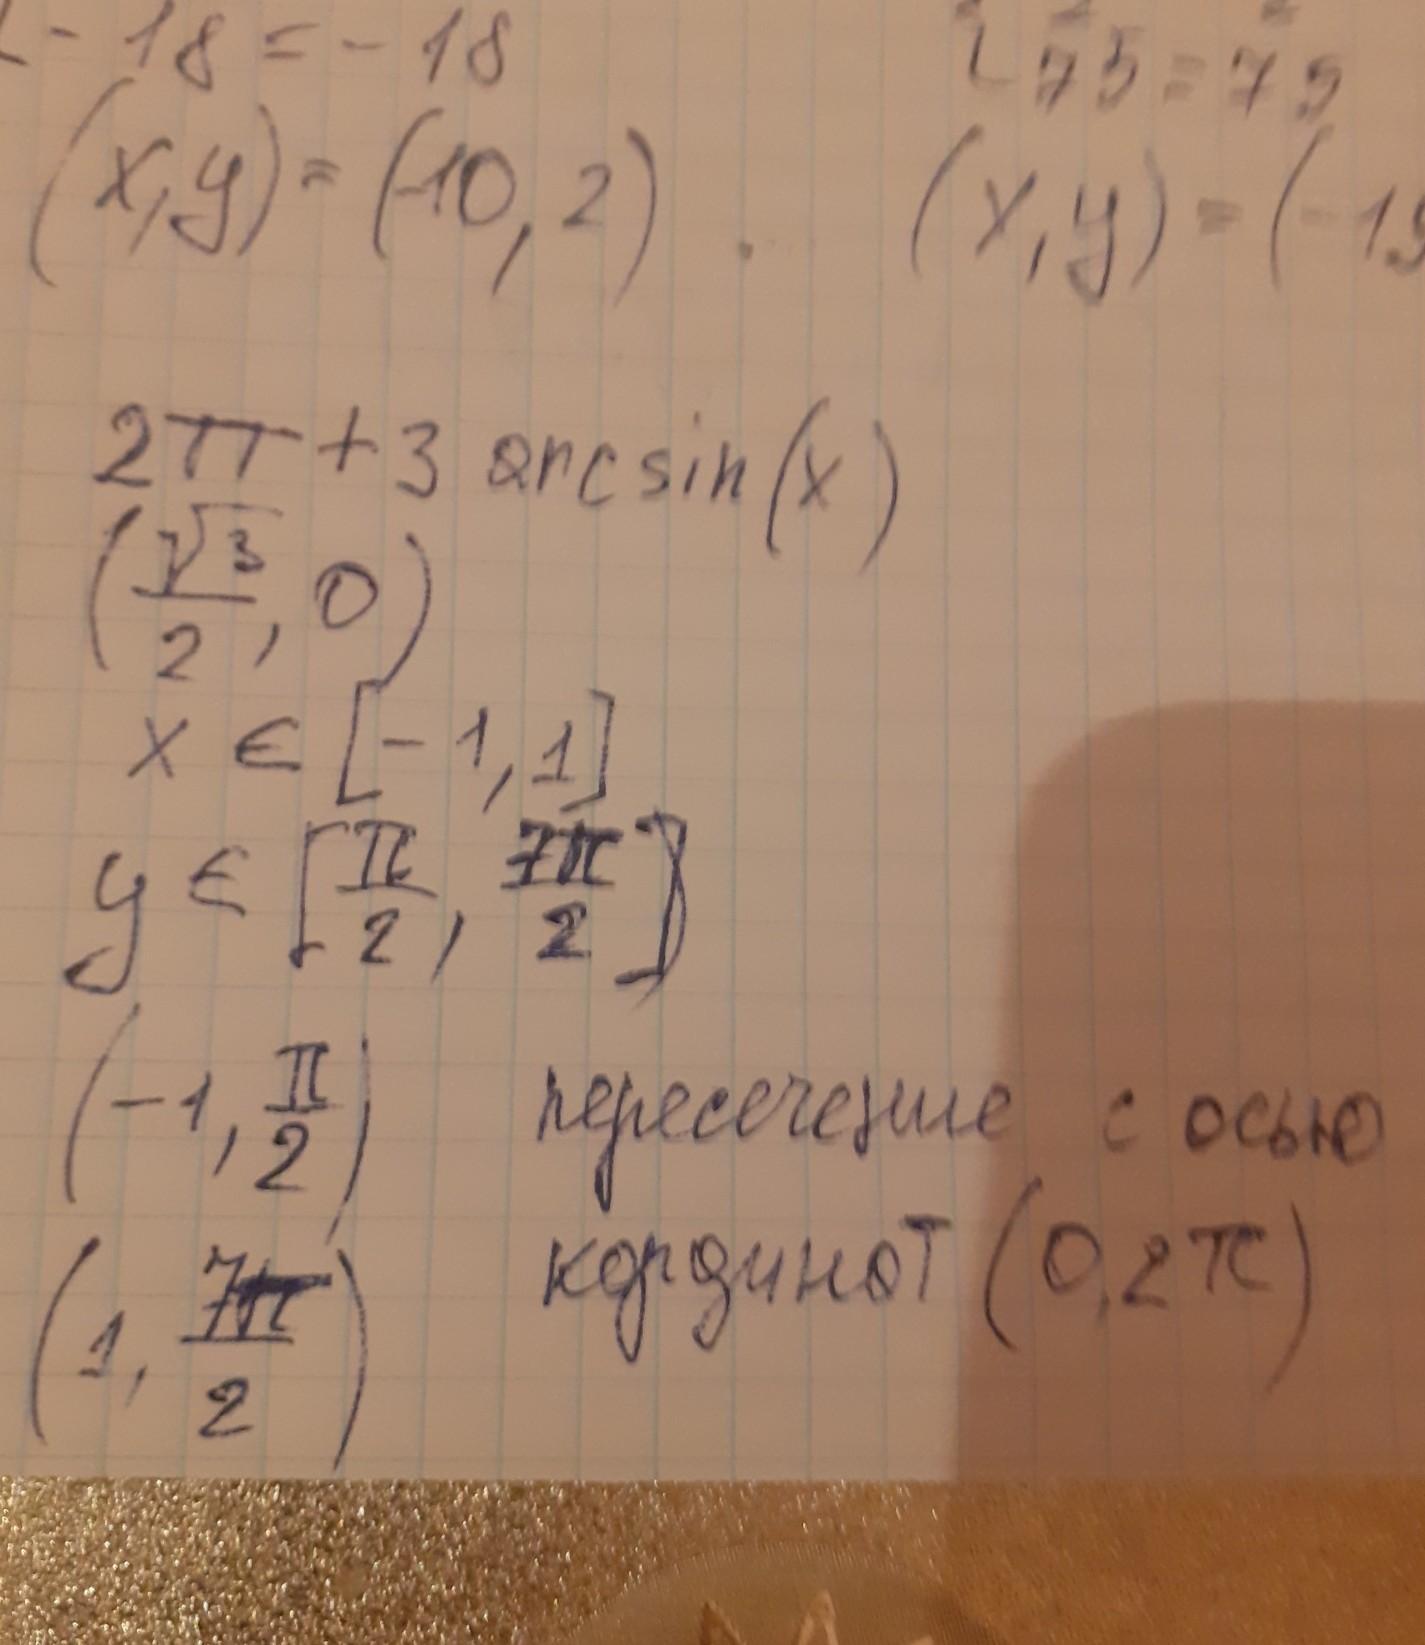 - 18 = - 18
75 = 75
(x,y) = (-10, 2) .
(x,y) = (-15
2π + 3 arcsin(x)
(√3/2, 0)
x ∈ [-1,1]
y ∈ [π/2, 7π/2]
(-1, π/2)
пересечение с осью
кординат (0,2π)
(1, 7π/2)